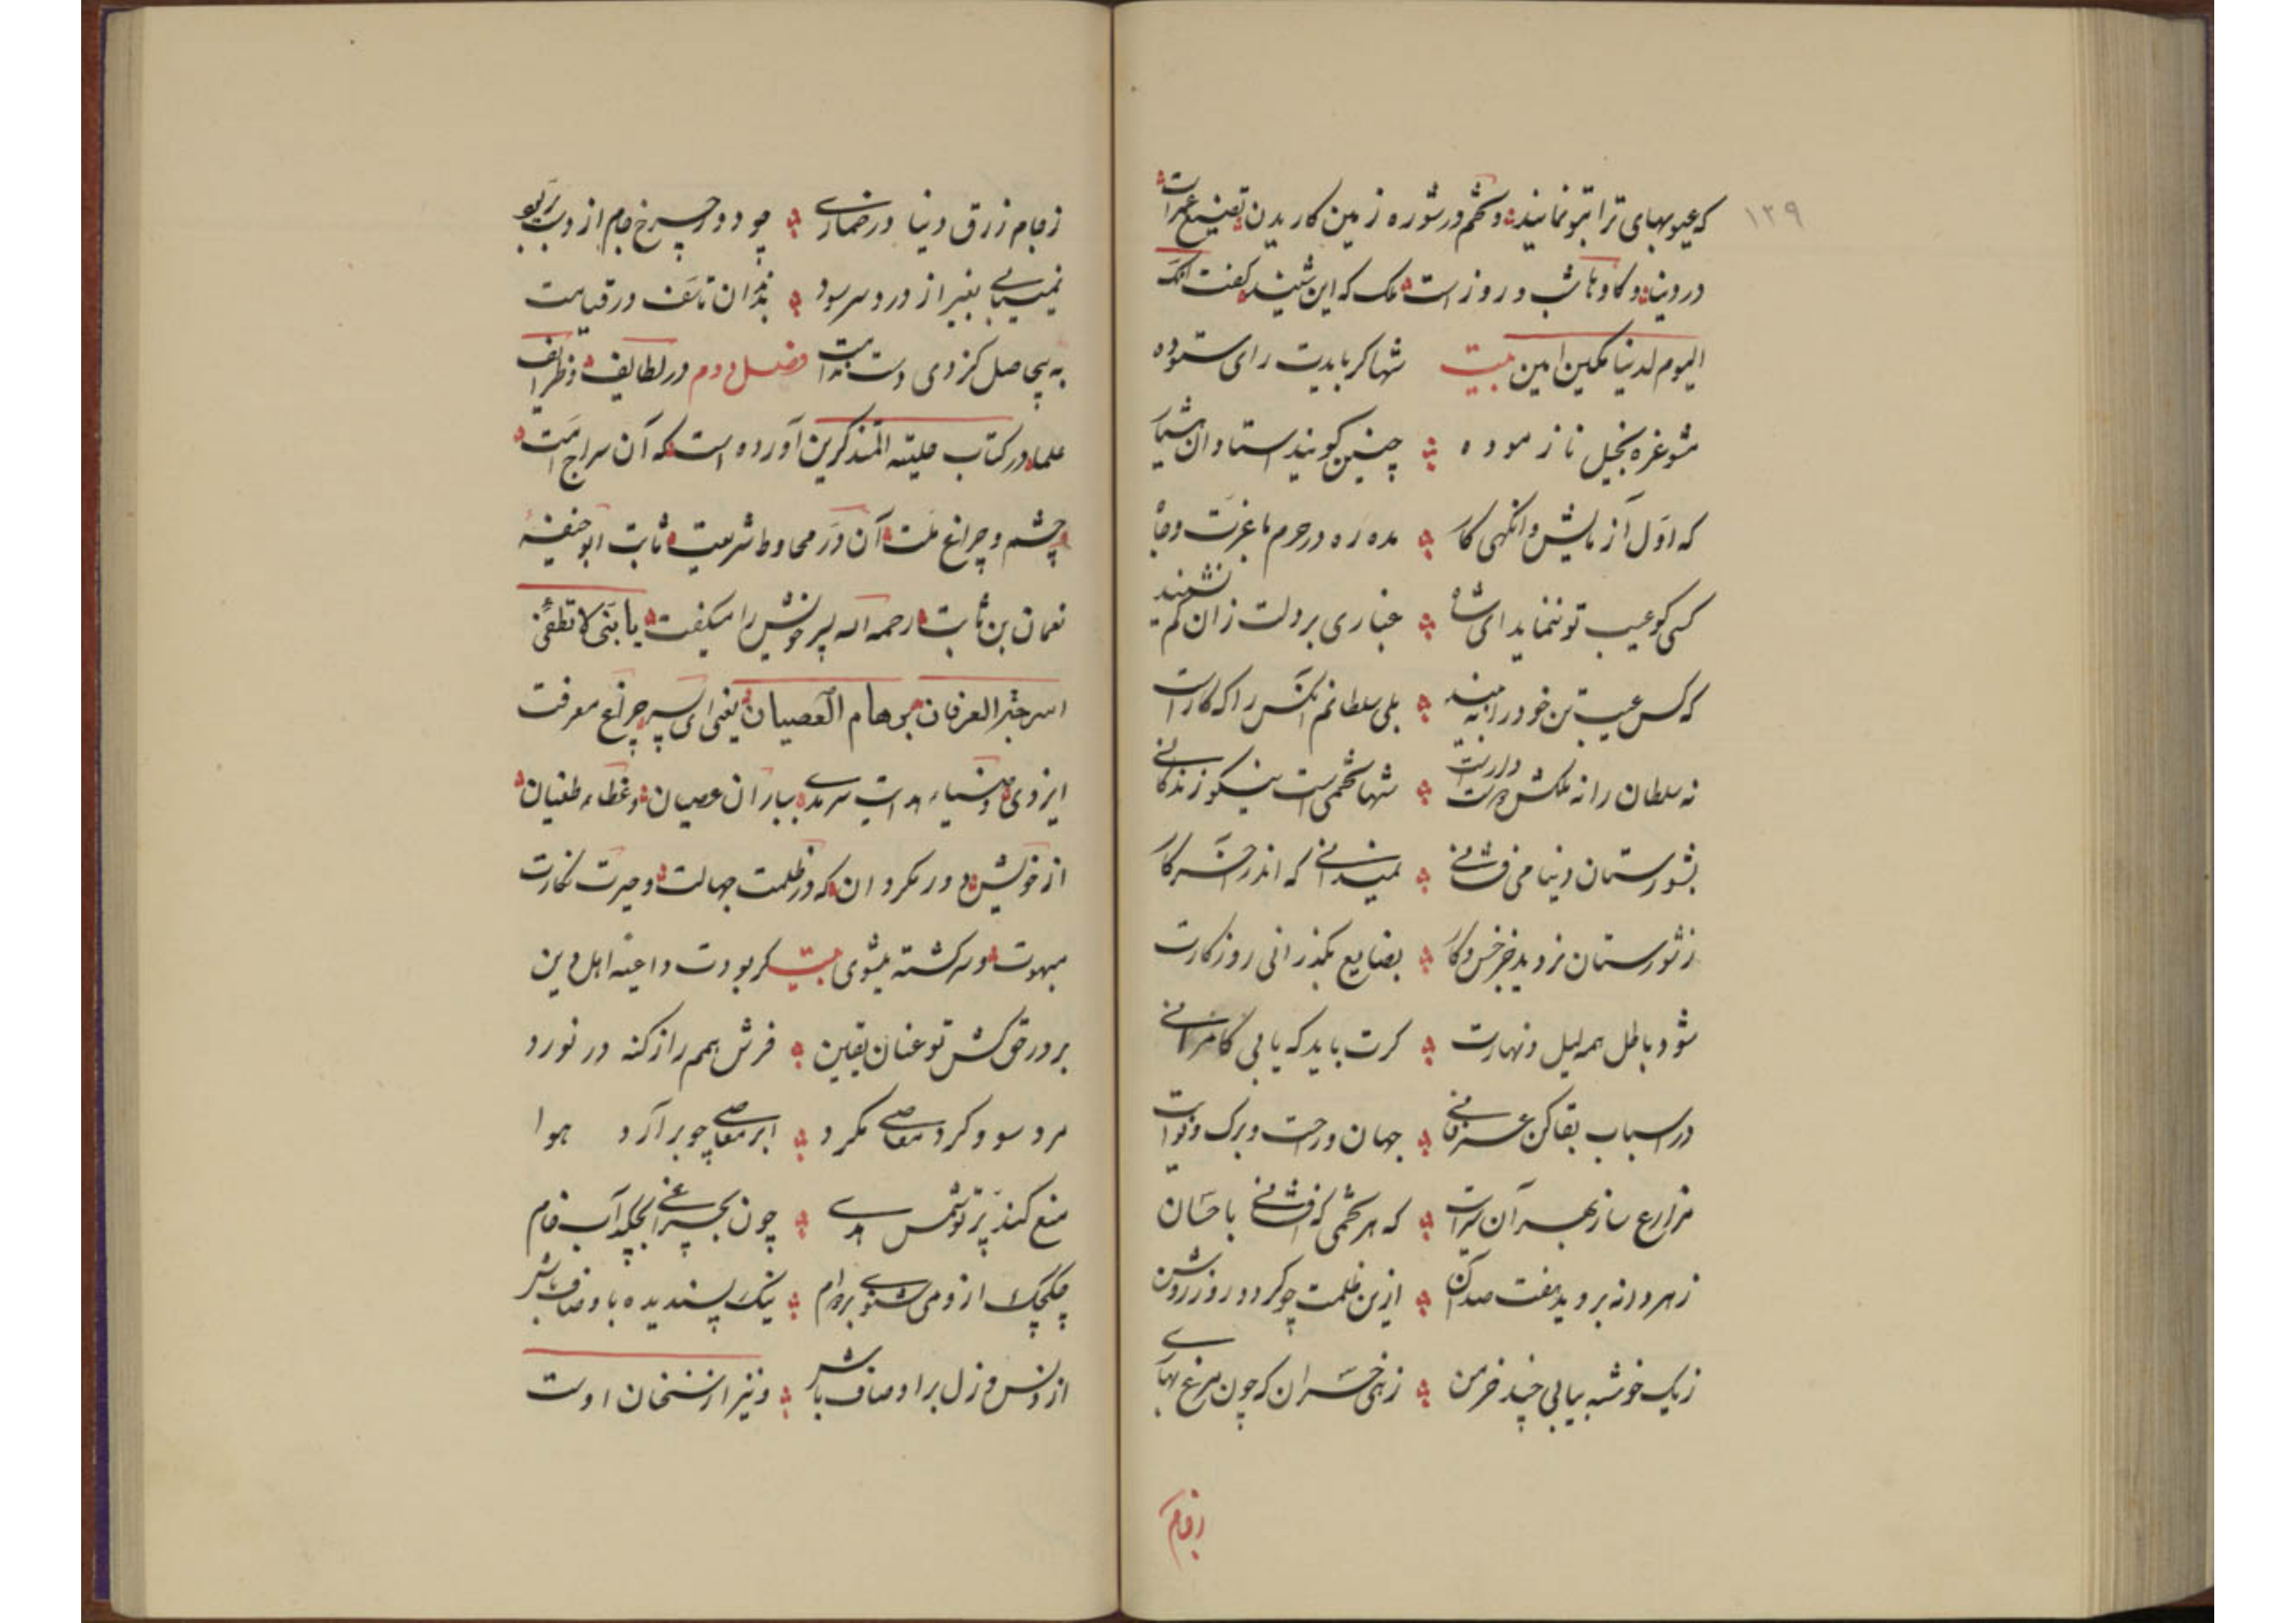 ۱۳۹
که عیوبهای ترا بتو نمایند و تخم در شوره زمین کاریدن تضییع عمرات
در دنیا و کاوماش و روز است ملک که این شنید گفت انک
الیوم لدینا مکین امین بیت شها کر بایدت رای ستوده
مشو غره بخیل نازموده چنین گویند استادان هشیار
که اول آزمایش وانگهی کار مده ره در حرم با عزت و جاه
کسی کو عیب تو ننماید ای شاه غباری بر دلت زان کم نشیند
که کس عیب تن خود را نبیند بلی سلطانم انکس را که کارست
نه سلطان را نه ملکش شها تخمی است نیکو زندگانی
بشورستان دنیا می فشانی نمیدانی که اندر آخر کار
ز شورستان نروید جز خس و خار بضایع بگذرانی روزگارت
شود باطل همه لیل و نهارت کرت باید که یابی کامرانی
در اسباب بقا کن جهان درخت و برک و نواست
مزارع ساز بهر آن سراست که هر تخمی که افشانی باحسان
ز هر دانه بروید هفت صد آن ازین ظلمت چو کردد روز روشن
ز یک خوشه بیابی چند خرمن زهی خسران که چون مرغ بهاری
ز جام
ز جام زرق دنیا در خماری چو دور چرخ جام از دست بربود
نمییابی بغیر از درد سر سود تاسف در قیامت
به بیحاصل کزوی دست فصل دوم در لطایف و ظرایف
علما در کتاب حلیته المذکرین آورده است که آن سراج امت
و چشم و چراغ ملت آن در محاوط شریعت ثابت ابو حنیفه
نعمان بن ثابت رحمه الله پسر خویش را میکفت یا بنی لا تطفئن
سرج العرفان برهام العصیان یعنی ای پسر چراغ معرفت
ایزدی و ضیاء هدایت سرمدی بباران عصیان و غطاء طغیان
از خویش دور مکردان که در ظلمت جهالت و حیرت نکارت
مبهوت و سرکشته میشوی بیت کر بودت داعیه اهل دین
بر در حق کش تو عنان یقین فرش همم را ز کنه در نورد
مرد سو و کرد معاصی مکرد ابر معاصی چو برآرد هوا
منع کند پرتو شمس هدی چون بچراغی بچکد آب خام
چکچک از و می شنوی بردوام نیک پسندیده باوصاف باش
از دنس و زل برا و صاف باش و نیز از سخنان اوست